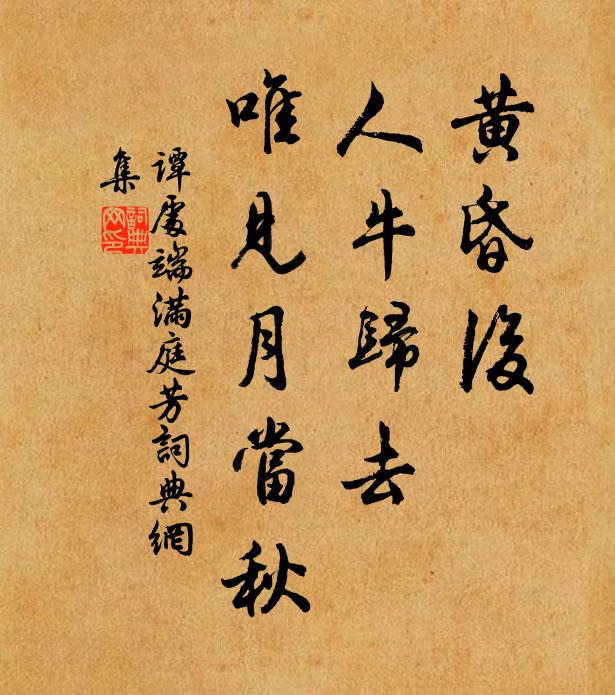 黃昏後
人牛歸去
唯見月當秋
譚處端滿庭芳詞典網
集
詞典
网印